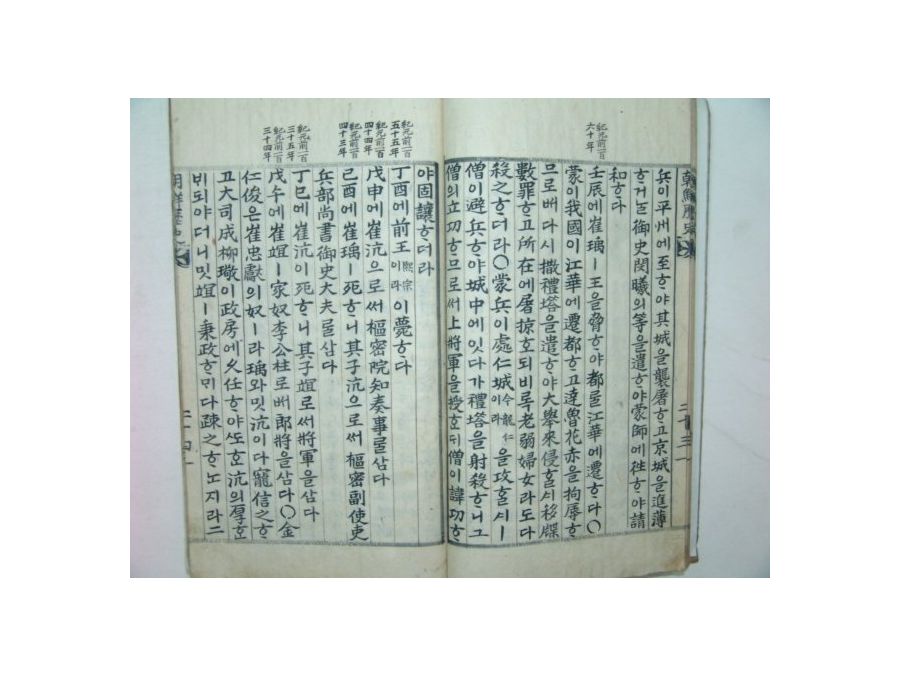 朝鮮歷史
二十三
兵이平州에至ᄒᆞ야其城을襲屠ᄒᆞ고京城을進薄
ᄒᆞ거ᄂᆞᆯ御史閔曦의等을遣ᄒᆞ야蒙師에往ᄒᆞ야請
和ᄒᆞ다
紀元前一百
六十年
壬辰에崔瑀ㅣ王을脅ᄒᆞ야都ᄅᆞᆯ江華에遷ᄒᆞ다○
蒙이我國이江華에遷都ᄒᆞ고達魯花赤을拘辱ᄒᆞ
므로ᄡᅥ다시撒禮塔을遣ᄒᆞ야大擧來侵ᄒᆞᆯᄉᆡ移牒
數罪ᄒᆞ고所在에屠掠ᄒᆞ되비록老弱婦女라도다
殺之ᄒᆞ더라○蒙兵이處仁城今龍仁이라을攻ᄒᆞᆯᄉᆡㅣ
僧이避兵ᄒᆞ야城中에잇다가禮塔을射殺ᄒᆞ니그
僧의立功ᄒᆞ므로ᄡᅥ上將軍을授ᄒᆞᄃᆡ僧이諱功ᄒᆞ
야固讓ᄒᆞ더라
紀元前一百
五十五年
丁酉에前王熙宗이라이薨ᄒᆞ다
紀元前一百
四十四年
戊申에崔沆으로ᄡᅥ樞密院知奏事ᄅᆞᆯ삼다
紀元前一百
四十三年
己酉에崔瑀ㅣ死ᄒᆞ니其子沆으로ᄡᅥ樞密副使吏
兵部尙書御史大夫ᄅᆞᆯ삼다
紀元前一百
三十五年
丁巳에崔沆이死ᄒᆞ니其子竩로ᄡᅥ將軍을삼다
紀元前一百
三十四年
戊午에崔竩ㅣ家奴李公柱로ᄡᅥ郎將을삼다○金
仁俊은崔忠獻의奴ㅣ라瑀와밋沆이다寵信之ᄒᆞ
고大司成柳璥이政房에久任ᄒᆞ야ᄯᅩᄒᆞᆫ沆의厚ᄒᆞᆫ
ᄇᆡ되야더니밋竩ㅣ秉政ᄒᆞᄆᆡ다疎之ᄒᆞᄂᆞᆫ지라二
二十四